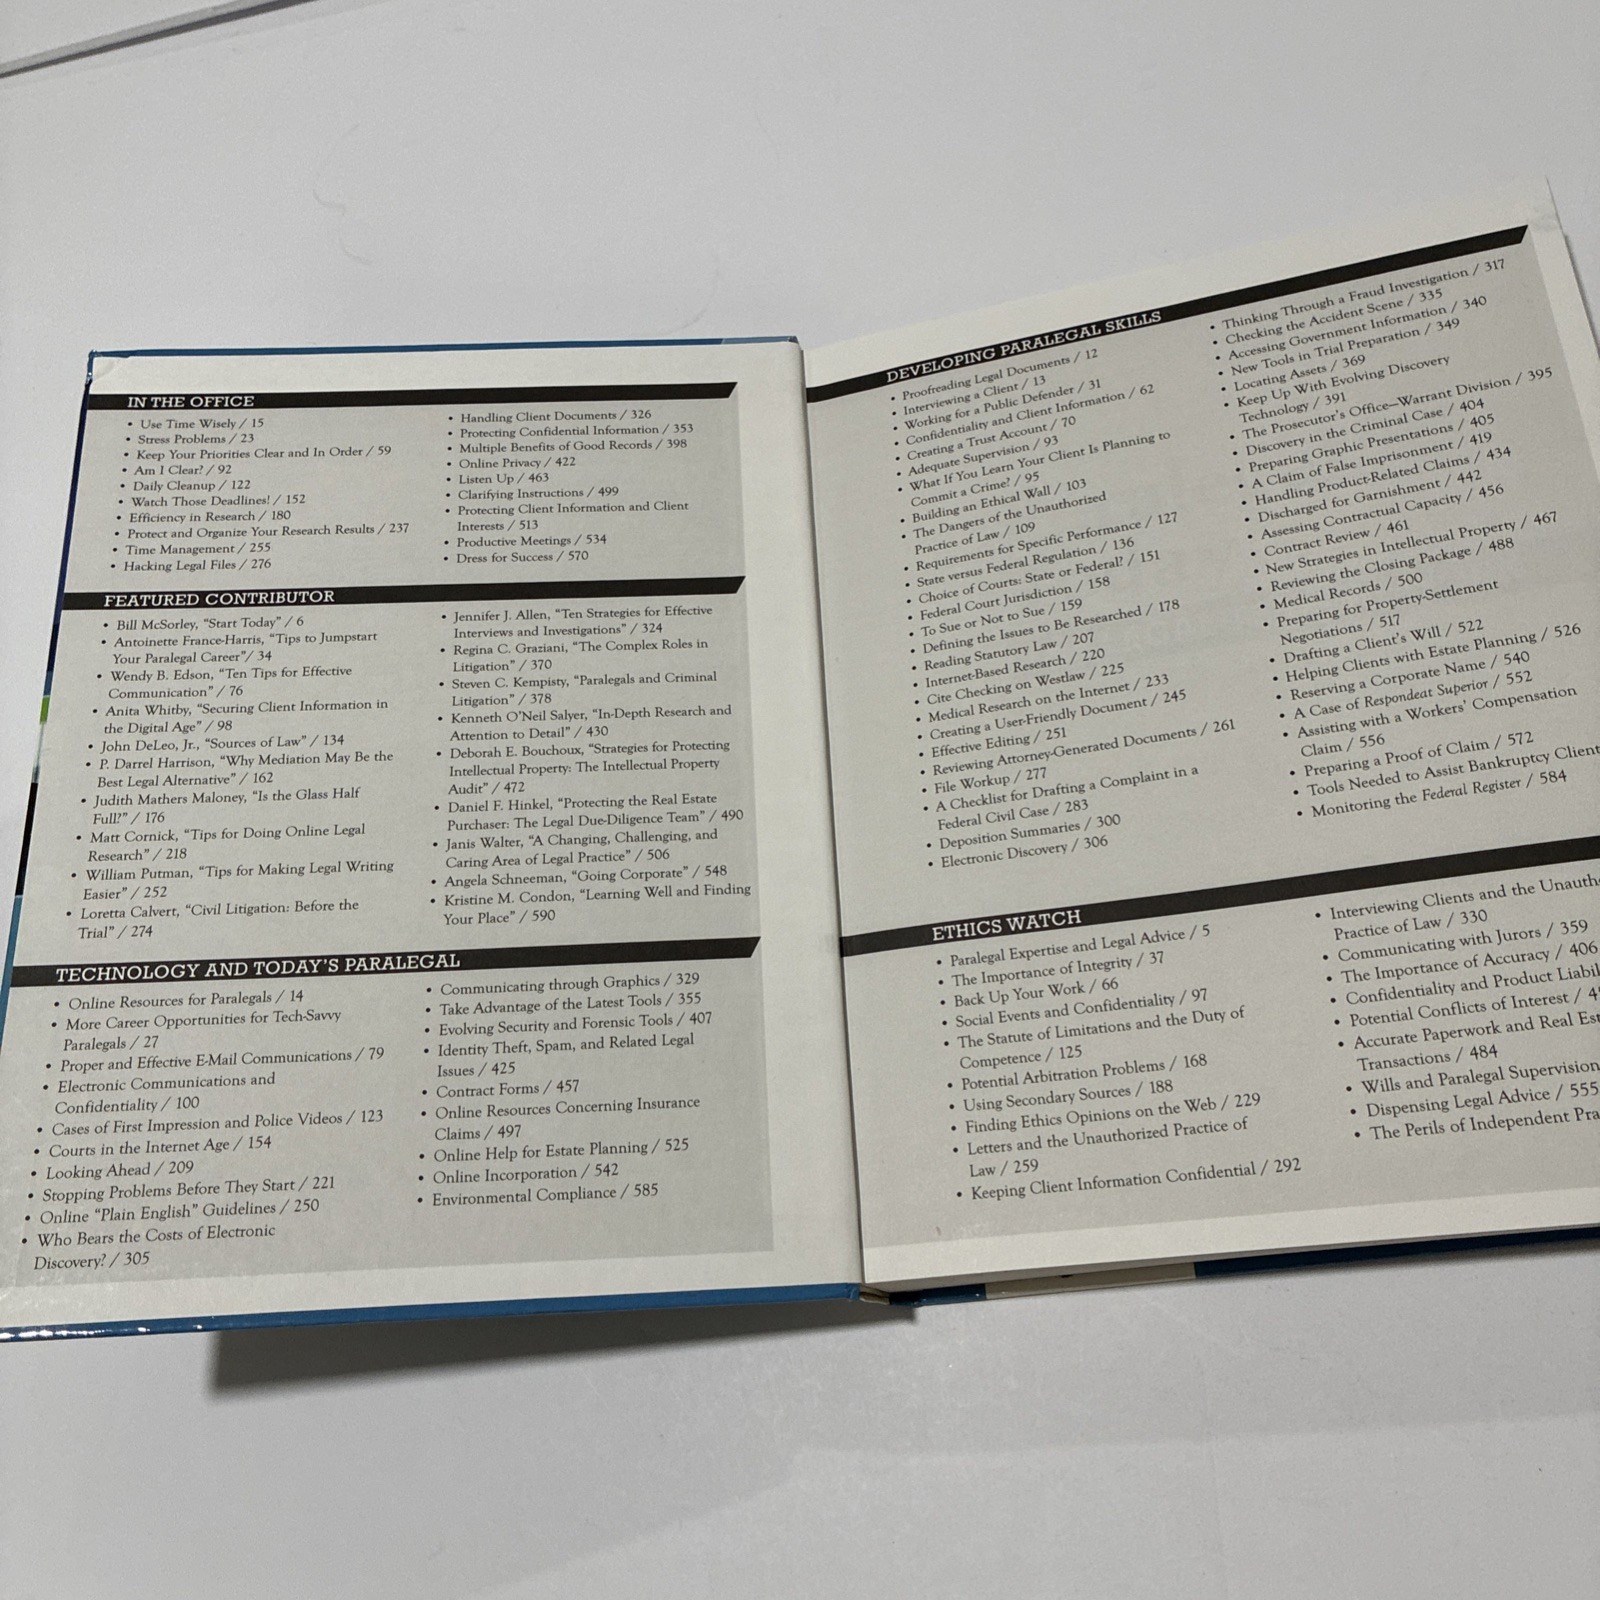 IN THE OFFICE
• Use Time Wisely / 15
• Stress Problems / 23
• Keep Your Priorities Clear and In Order / 59
• Am I Clear? / 92
• Daily Cleanup / 122
• Watch Those Deadlines! / 152
• Efficiency in Research / 180
• Protect and Organize Your Research Results / 237
• Time Management / 255
• Hacking Legal Files / 276
• Handling Client Documents / 326
• Protecting Confidential Information / 353
• Multiple Benefits of Good Records / 398
• Online Privacy / 422
• Listen Up / 463
• Clarifying Instructions / 499
• Protecting Client Information and Client
Interests / 513
• Productive Meetings / 534
• Dress for Success / 570
FEATURED CONTRIBUTOR
• Bill McSorley, “Start Today” / 6
• Antoinette France-Harris, “Tips to Jumpstart
Your Paralegal Career”/ 34
• Wendy B. Edson, “Ten Tips for Effective
Communication” / 76
• Anita Whitby, “Securing Client Information in
the Digital Age” / 98
• John DeLeo, Jr., “Sources of Law” / 134
• P. Darrel Harrison, “Why Mediation May Be the
Best Legal Alternative” / 162
• Judith Mathers Maloney, “Is the Glass Half
Full?” / 176
• Matt Cornick, “Tips for Doing Online Legal
Research” / 218
• William Putman, “Tips for Making Legal Writing
Easier” / 252
• Loretta Calvert, “Civil Litigation: Before the
Trial” / 274
• Jennifer J. Allen, “Ten Strategies for Effective
Interviews and Investigations” / 324
• Regina C. Graziani, “The Complex Roles in
Litigation” / 370
• Steven C. Kempisty, “Paralegals and Criminal
Litigation” / 378
• Kenneth O’Neil Salyer, “In-Depth Research and
Attention to Detail” / 430
• Deborah E. Bouchoux, “Strategies for Protecting
Intellectual Property: The Intellectual Property
Audit” / 472
• Daniel F. Hinkel, “Protecting the Real Estate
Purchaser: The Legal Due-Diligence Team” / 490
• Janis Walter, “A Changing, Challenging, and
Caring Area of Legal Practice” / 506
• Angela Schneeman, “Going Corporate” / 548
• Kristine M. Condon, “Learning Well and Finding
Your Place” / 590
TECHNOLOGY AND TODAY’S PARALEGAL
• Online Resources for Paralegals / 14
• More Career Opportunities for Tech-Savvy
Paralegals / 27
• Proper and Effective E-Mail Communications / 79
• Electronic Communications and
Confidentiality / 100
• Cases of First Impression and Police Videos / 123
• Courts in the Internet Age / 154
• Looking Ahead / 209
• Stopping Problems Before They Start / 221
• Online “Plain English” Guidelines / 250
• Who Bears the Costs of Electronic
Discovery? / 305
• Communicating through Graphics / 329
• Take Advantage of the Latest Tools / 355
• Evolving Security and Forensic Tools / 407
• Identity Theft, Spam, and Related Legal
Issues / 425
• Contract Forms / 457
• Online Resources Concerning Insurance
Claims / 497
• Online Help for Estate Planning / 525
• Online Incorporation / 542
• Environmental Compliance / 585
DEVELOPING PARALEGAL SKILLS
• Proofreading Legal Documents / 12
• Interviewing a Client / 13
• Working for a Public Defender / 31
• Confidentiality and Client Information / 62
• Creating a Trust Account / 70
• Adequate Supervision / 93
• What If You Learn Your Client Is Planning to
Commit a Crime? / 95
• Building an Ethical Wall / 103
• The Dangers of the Unauthorized
Practice of Law / 109
• Requirements for Specific Performance / 127
• State versus Federal Regulation / 136
• Choice of Courts: State or Federal? / 151
• Federal Court Jurisdiction / 158
• To Sue or Not to Sue / 159
• Defining the Issues to Be Researched / 178
• Reading Statutory Law / 207
• Internet-Based Research / 220
• Cite Checking on Westlaw / 225
• Medical Research on the Internet / 233
• Creating a User-Friendly Document / 245
• Effective Editing / 251
• Reviewing Attorney-Generated Documents / 261
• File Workup / 277
• A Checklist for Drafting a Complaint in a
Federal Civil Case / 283
• Deposition Summaries / 300
• Electronic Discovery / 306
• Thinking Through a Fraud Investigation / 317
• Checking the Accident Scene / 335
• Accessing Government Information / 340
• New Tools in Trial Preparation / 349
• Locating Assets / 369
• Keep Up With Evolving Discovery
Technology / 391
• The Prosecutor’s Office—Warrant Division / 395
• Discovery in the Criminal Case / 404
• Preparing Graphic Presentations / 405
• A Claim of False Imprisonment / 419
• Handling Product-Related Claims / 434
• Discharged for Garnishment / 442
• Assessing Contractual Capacity / 456
• Contract Review / 461
• New Strategies in Intellectual Property / 467
• Reviewing the Closing Package / 488
• Medical Records / 500
• Preparing for Property-Settlement
Negotiations / 517
• Drafting a Client’s Will / 522
• Helping Clients with Estate Planning / 526
• Reserving a Corporate Name / 540
• A Case of Respondeat Superior / 552
• Assisting with a Workers’ Compensation
Claim / 556
• Preparing a Proof of Claim / 572
• Tools Needed to Assist Bankruptcy Client
• Monitoring the Federal Register / 584
ETHICS WATCH
• Paralegal Expertise and Legal Advice / 5
• The Importance of Integrity / 37
• Back Up Your Work / 66
• Social Events and Confidentiality / 97
• The Statute of Limitations and the Duty of
Competence / 125
• Potential Arbitration Problems / 168
• Using Secondary Sources / 188
• Finding Ethics Opinions on the Web / 229
• Letters and the Unauthorized Practice of
Law / 259
• Keeping Client Information Confidential / 292
• Interviewing Clients and the
Practice of Law / 330
• Communicating with Jurors / 359
• The Importance of Accuracy / 406
• Confidentiality and Product
• Potential Conflicts of Interest /
• Accurate Paperwork and Real
Transactions / 484
• Wills and Paralegal Supervision
• Dispensing Legal Advice / 555
• The Perils of Independent